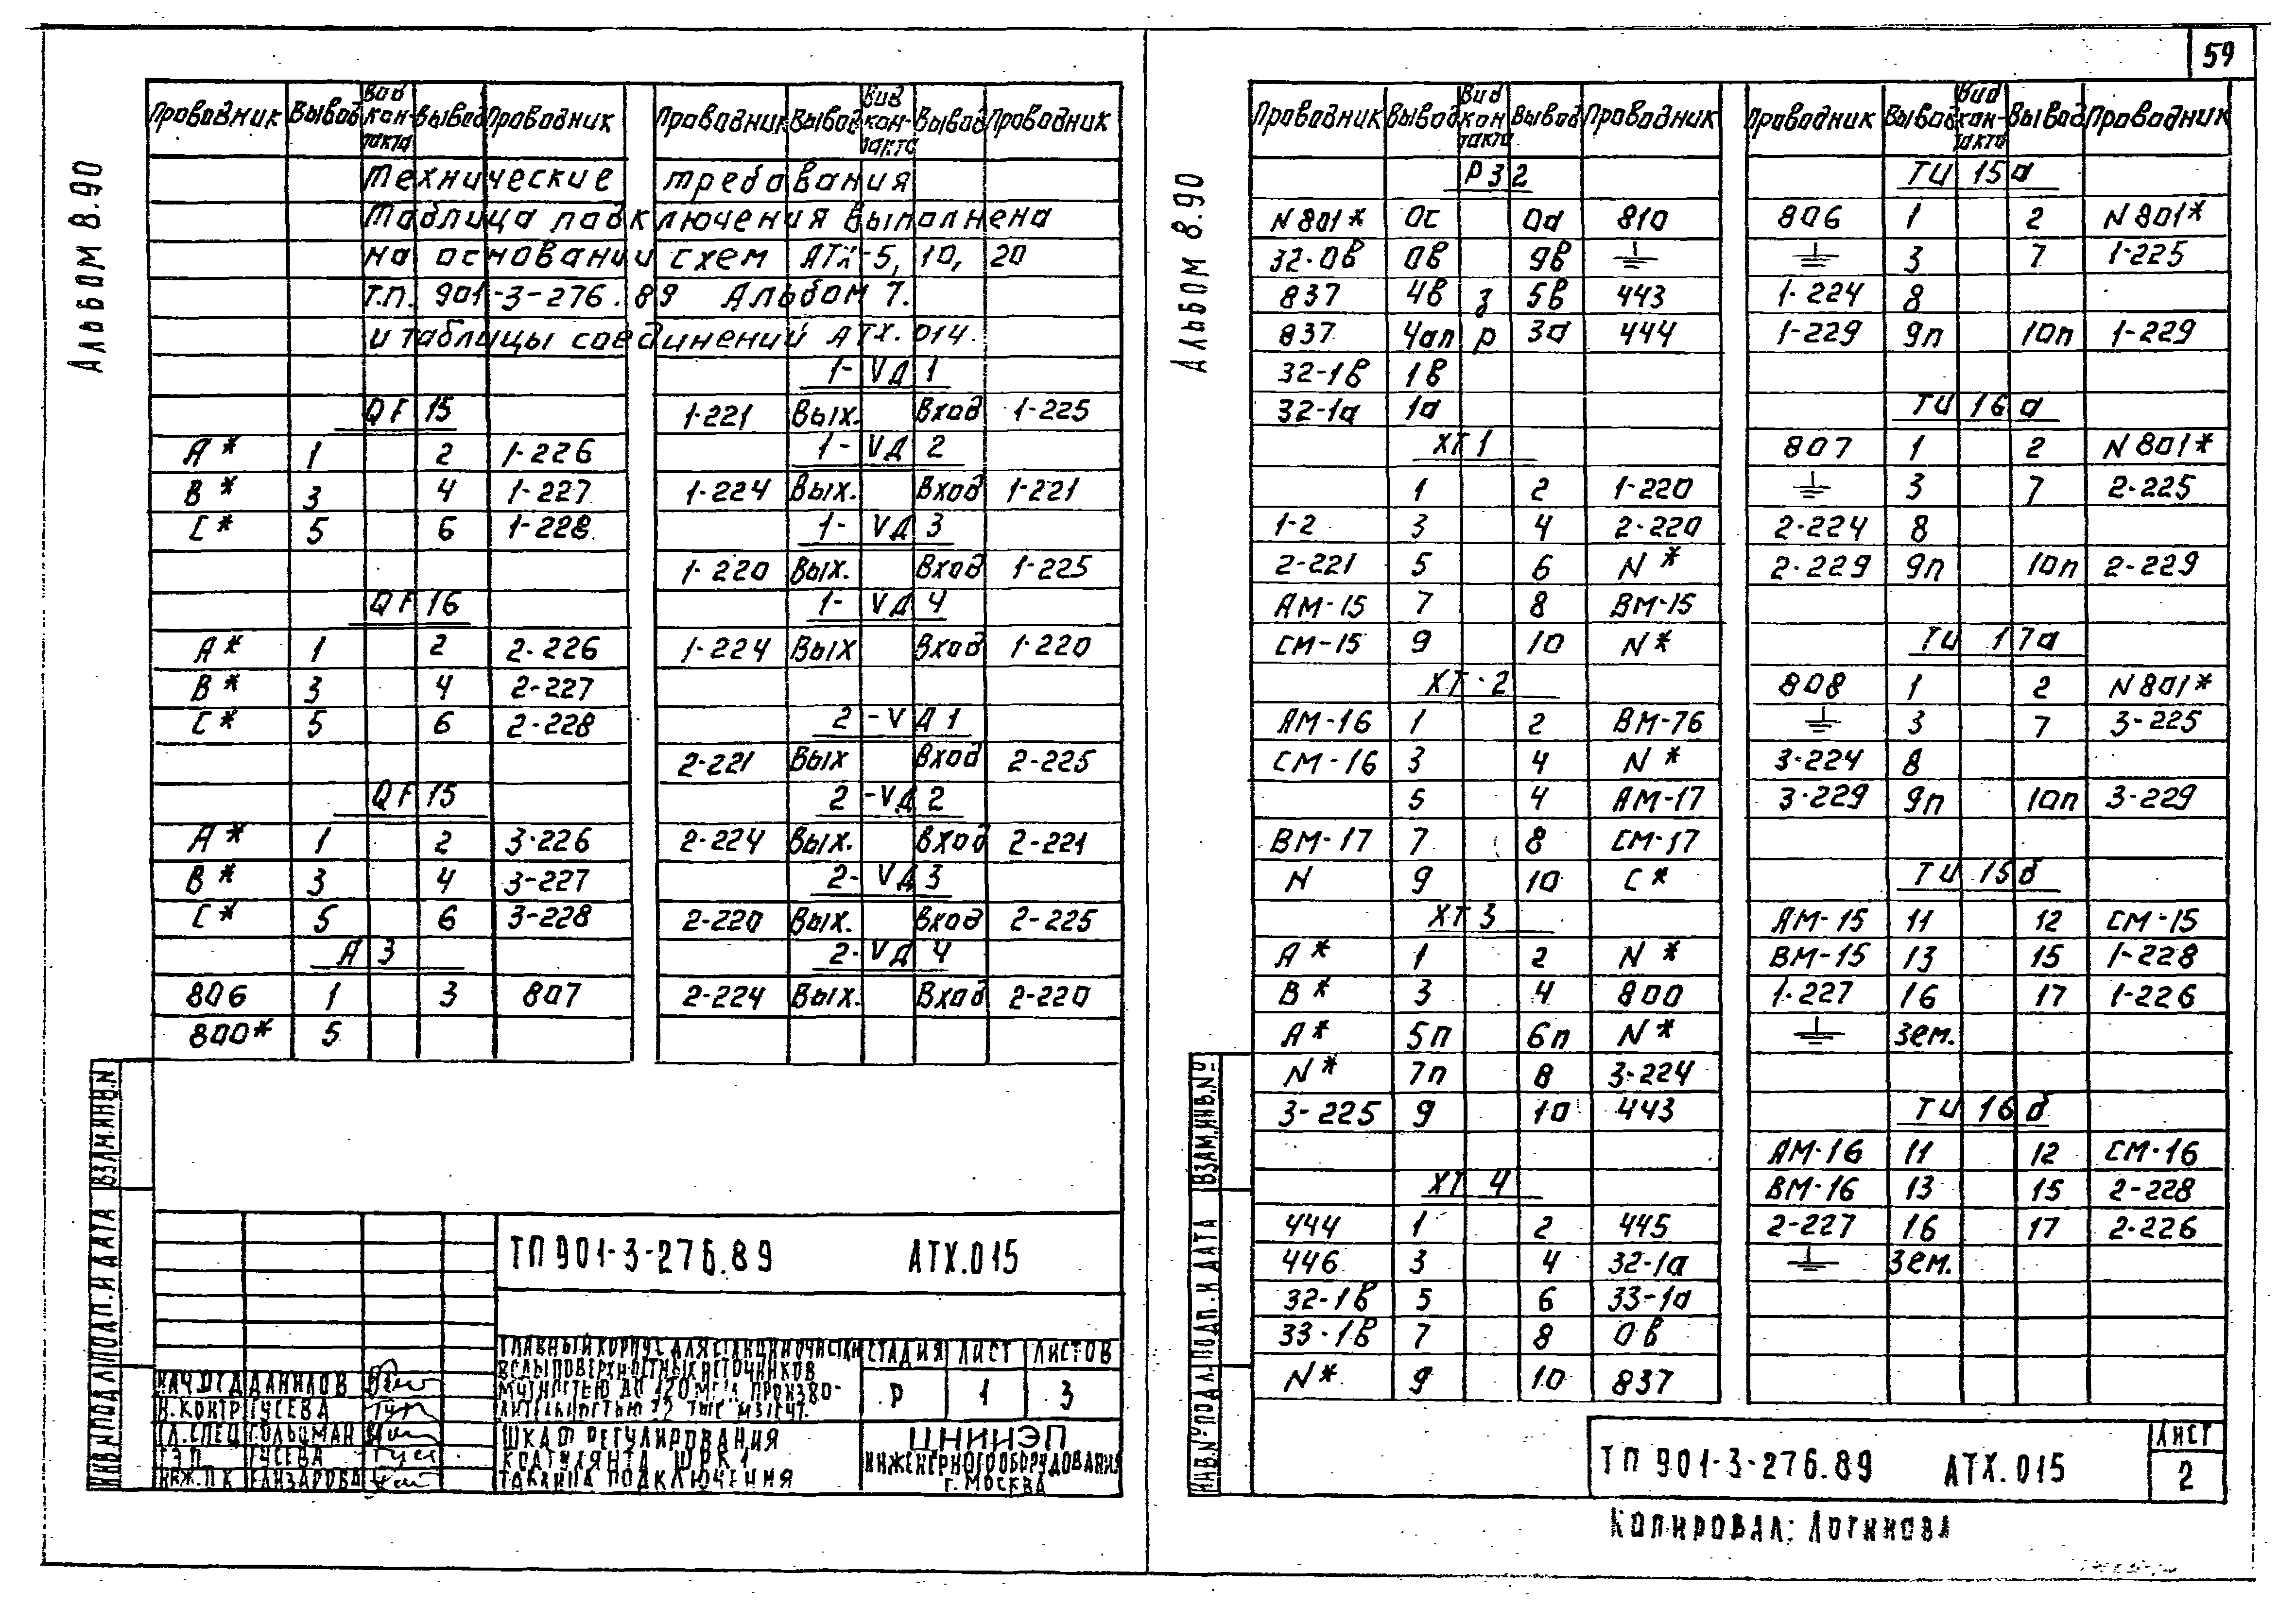 59
Альбом 8.90
Проводник Вывод Вид контакта Вывод Проводник
Технические требования
Таблица подключения выполнена
на основании схем АТХ-5, 10, 20
т.п. 901-3-276.89 Альбом 7.
и таблицы соединений АТХ.014.
QF 15
А* 1 2 1-226
В* 3 4 1-227
С* 5 6 1-228
QF 16
А* 1 2 2-226
В* 3 4 2-227
С* 5 6 2-228
QF 15
А* 1 2 3-226
В* 3 4 3-227
С* 5 6 3-228
А 3
806 1 3 807
800* 5
Проводник Вывод Вид контакта Вывод Проводник
1-VД 1
1-221 Вых. Вход 1-225
1-VД 2
1-224 Вых. Вход 1-221
1-VД 3
1-220 Вых. Вход 1-225
1-VД 4
1-224 Вых Вход 1-220
2-VД1
2-221 Вых Вход 2-225
2-VД 2
2-224 Вых. Вход 2-221
2-VД 3
2-220 Вых. Вход 2-225
2-VД 4
2-224 Вых. Вход 2-220
ВЗАМ.ИНВ.N
ПОДП. И ДАТА
ИНВ.N ПОДЛ.
ТП 901-3-276.89 АТХ.015
ГЛАВНЫЙ КОРПУС ДЛЯ СТАНЦИИ ОЧИСТКИ
ВОДЫ ПОВЕРХНОСТНЫХ ИСТОЧНИКОВ
МУТНОСТЬЮ ДО 120 МГ/Л ПРОИЗВО-
ДИТЕЛЬНОСТЬЮ 32 ТЫС М3/СУТ.
СТАДИЯ ЛИСТ ЛИСТОВ
Р 1 3
НАЧ.ОТД ДАНИЛОВ
Н.КОНТР ГУСЕВА
ГЛ.СПЕЦ ГОЛЬЦМАН
ГЭП ГУСЕВА
ИНЖ. II К ЕЛИЗАРОВА
ШКАФ РЕГУЛИРОВАНИЯ
КОАГУЛЯНТА ШРК1
ТАБЛИЦА ПОДКЛЮЧЕНИЯ
ЦНИИЭП
ИНЖЕНЕРНОГО ОБОРУДОВАНИЯ
Г. МОСКВА
Альбом 8.90
Проводник Вывод Вид контакта Вывод Проводник
Р32
N 801* 0с 0а 810
32-0в 0в 9в ⏚
837 4в з 5в 443
837 4ап р 3а 444
32-1в 1в
32-1а 1а
ХТ 1
1 2 1-220
1-2 3 4 2-220
2-221 5 6 N*
АМ-15 7 8 ВМ-15
СМ-15 9 10 N*
ХТ-2
АМ-16 1 2 ВМ-76
СМ-16 3 4 N*
5 4 АМ-17
ВМ-17 7 8 СМ-17
N 9 10 С*
ХТ 3
А* 1 2 N*
В* 3 4 800
А* 5п 6п N*
N* 7п 8 3-224
3-225 9 10 443
ХТ 4
444 1 2 445
446 3 4 32-1а
32-1в 5 6 33-1а
33-1в 7 8 0в
N* 9 10 837
Проводник Вывод Вид контакта Вывод Проводник
ТЦ 15а
806 1 2 N 801*
⏚ 3 7 1-225
1-224 8
1-229 9п 10п 1-229
ТЦ 16а
807 1 2 N 801*
⏚ 3 7 2-225
2-224 8
2-229 9п 10п 2-229
ТЦ 17а
808 1 2 N 801*
⏚ 3 7 3-225
3-224 8
3-229 9п 10п 3-229
ТЦ 15б
АМ-15 11 12 СМ-15
ВМ-15 13 15 1-228
1-227 16 17 1-226
⏚ Зем.
ТЦ 16б
АМ-16 11 12 СМ-16
ВМ-16 13 15 2-228
2-227 16 17 2-226
⏚ Зем.
ВЗАМ.ИНВ.Nº
ПОДП. И ДАТА
ИНВ.Nº ПОДЛ.
ТП 901-3-276.89 АТХ.015
ЛИСТ
2
Копировал: Логинова